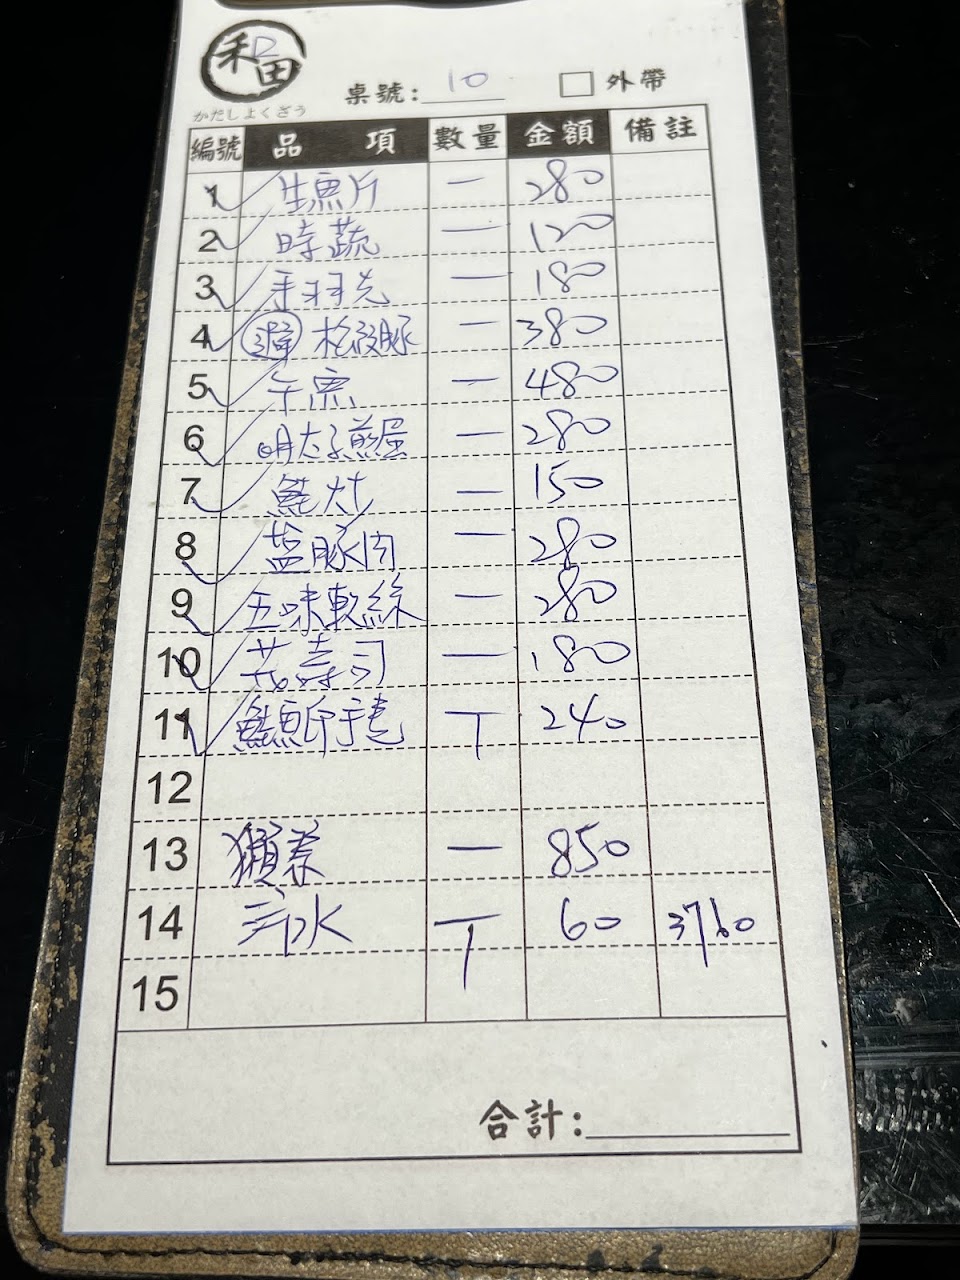 和田
かだしょくどう
桌號: 10 外帶
編號 品項 數量 金額 備註
1 生魚片 一 280
2 時蔬 一 120
3 手羽先 一 180
4 松阪豚 一 380
5 午魚 一 480
6 明太子煎蛋 一 280
7 一 150
8 盐豚肉 一 280
9 五味軟絲 一 280
10 花壽司 一 180
11 鮭魚卵手卷 T 240
12
13 獺祭 一 850
14 汽水 T 60 3760
15
合計: